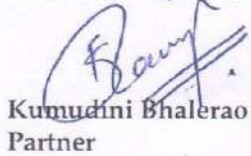 Kumudini Bhalerao
Partner